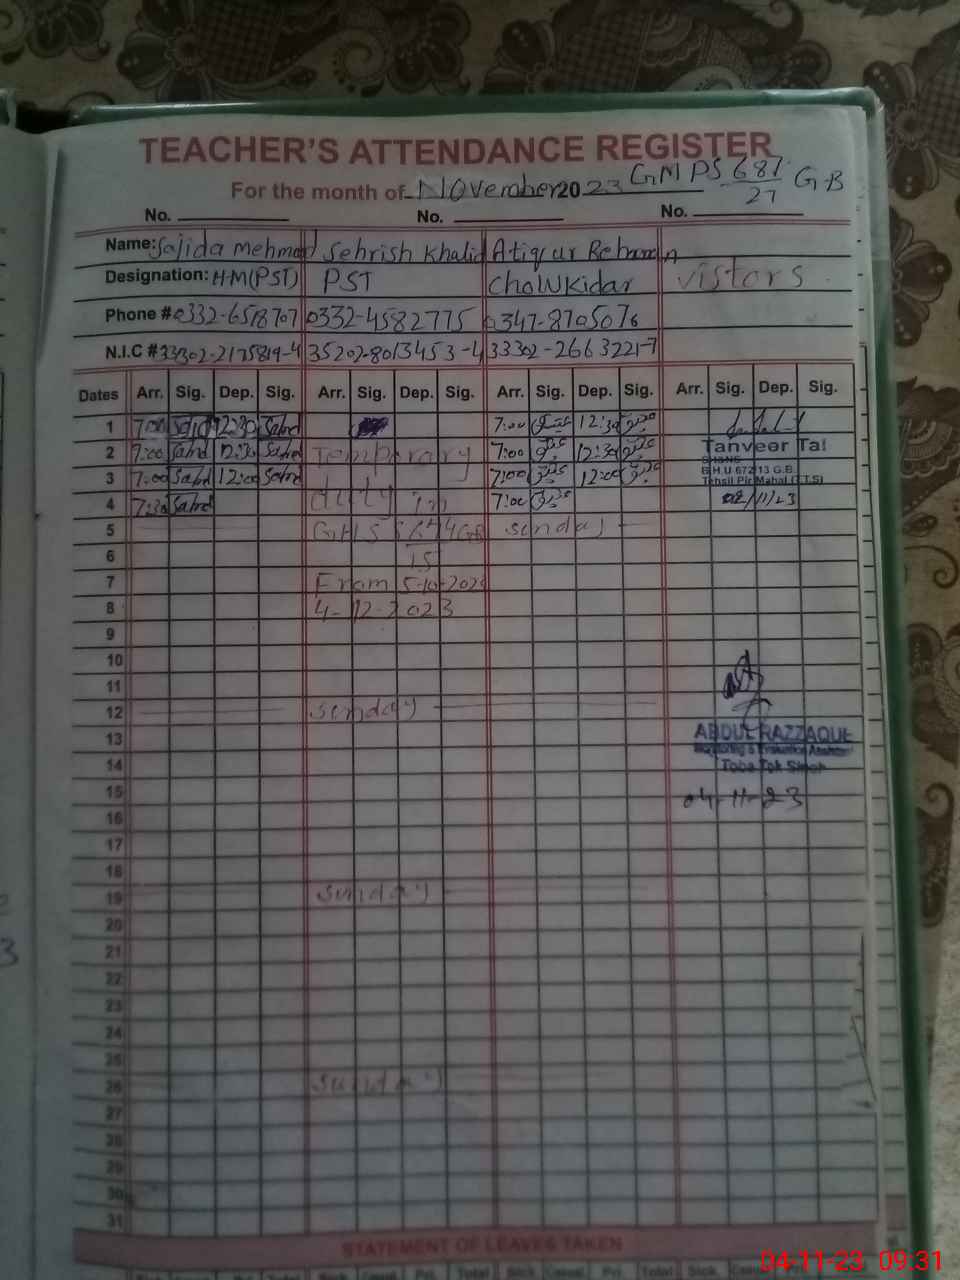 TEACHER'S ATTENDANCE REGISTER
For the month of November 2023 GMPS 681/27 GB
No. No. No.
Name: Sajida Mehmod Sehrish Khalid Atiq ur Rehman
Designation: HM(PST) PST Chowkidar vistors
Phone # 0332-6518707 0332-4582775 0347-8705076
N.I.C # 33302-2175819-4 35202-8013453-4 33302-2663221-7
Dates Arr. Sig. Dep. Sig. Arr. Sig. Dep. Sig. Arr. Sig. Dep. Sig. Arr. Sig. Dep. Sig.
1 7:00 Sajd 12:30 Sajd 7:00 12:30
2 7:00 Sajd 12:30 Sajd Temporary 7:00 12:30 Tanveer Tal
3 7:00 Sajd 12:00 Sajd 7:00 12:00 B.H.U 672/13 G.B.
Tehsil Pir Mahal (T.T.S)
4 7:30 Sajd duty in 7:00 02/11/23
5 GHS sunday
6 15
7 From 5-10-2023
8 4-12-2023
9
10
11
12 sunday
13 ABDUL RAZZAQUE
Monitoring & Evaluation Assistant
14 Toba Tek Singh
15 04-11-23
16
17
18
19 sunday
20
21
22
23
24
25
26 sunday
27
28
29
30
31
STATEMENT OF LEAVES TAKEN
04-11-23 09:31